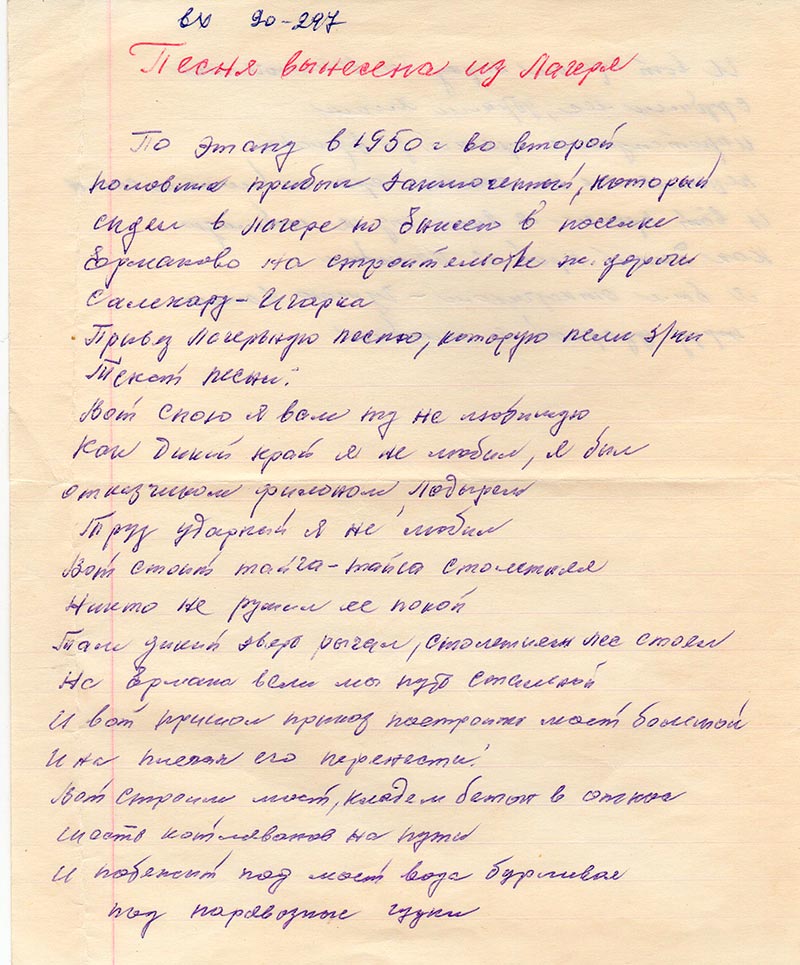 вх 90-297
Песня вынесена из Лагеря
По этапу в 1950 г во второй
половине прибыл Заключенный, который
сидел в Лагере по в поселке
Ермаково на строительстве ж. дороги
Салехард-Игарка
Привез Лагерную песню, которую пели з/ки
Текст песни:
Вот спою я вам ту не любимую
Как Дикий край я не любил, я был
отказчиком филоном Лодырем
Труд ударный я не любил
Вот стоит тайга-тайга столетняя
Никто не рушил ее покой
Там дикий зверь рычал, столетием лес стоял
На Ермака вели мы путь стальной
И вот пришол приказ построить мост большой
И на плечах его перенести!
Вот строим мост, кладем бетон в откос
шесть котлованов на пути
И побежит под мост вода бурливая
под паравозные гудки